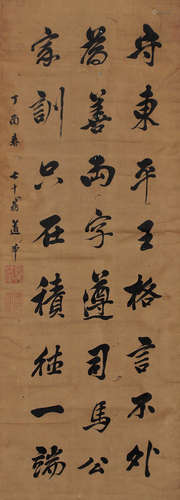 守東平王格言不外
為善兩字遵司馬公
家訓只在積德一端
丁酉春 七十翁